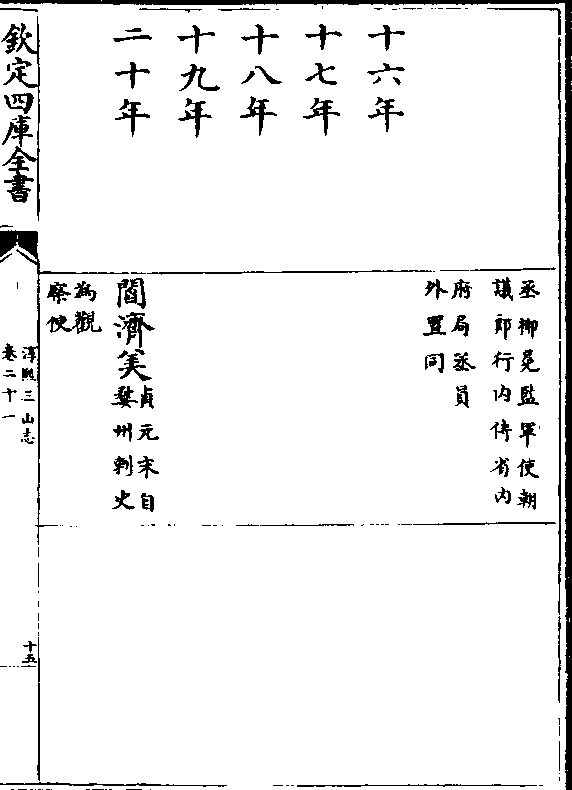 丞柳冕監軍使朝
議郎行内侍省内
府局丞員
外置同
十六年
十七年
十八年
十九年
二十年
閻濟美
貞元末自
婺州刺史
為觀
察使
欽定四庫全書
淳熙三山志
卷二十一
十五